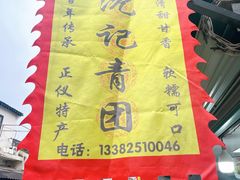 清甜甘香
软糯可口
沈记青团
百年传承
正仪特产
电话:13382510046